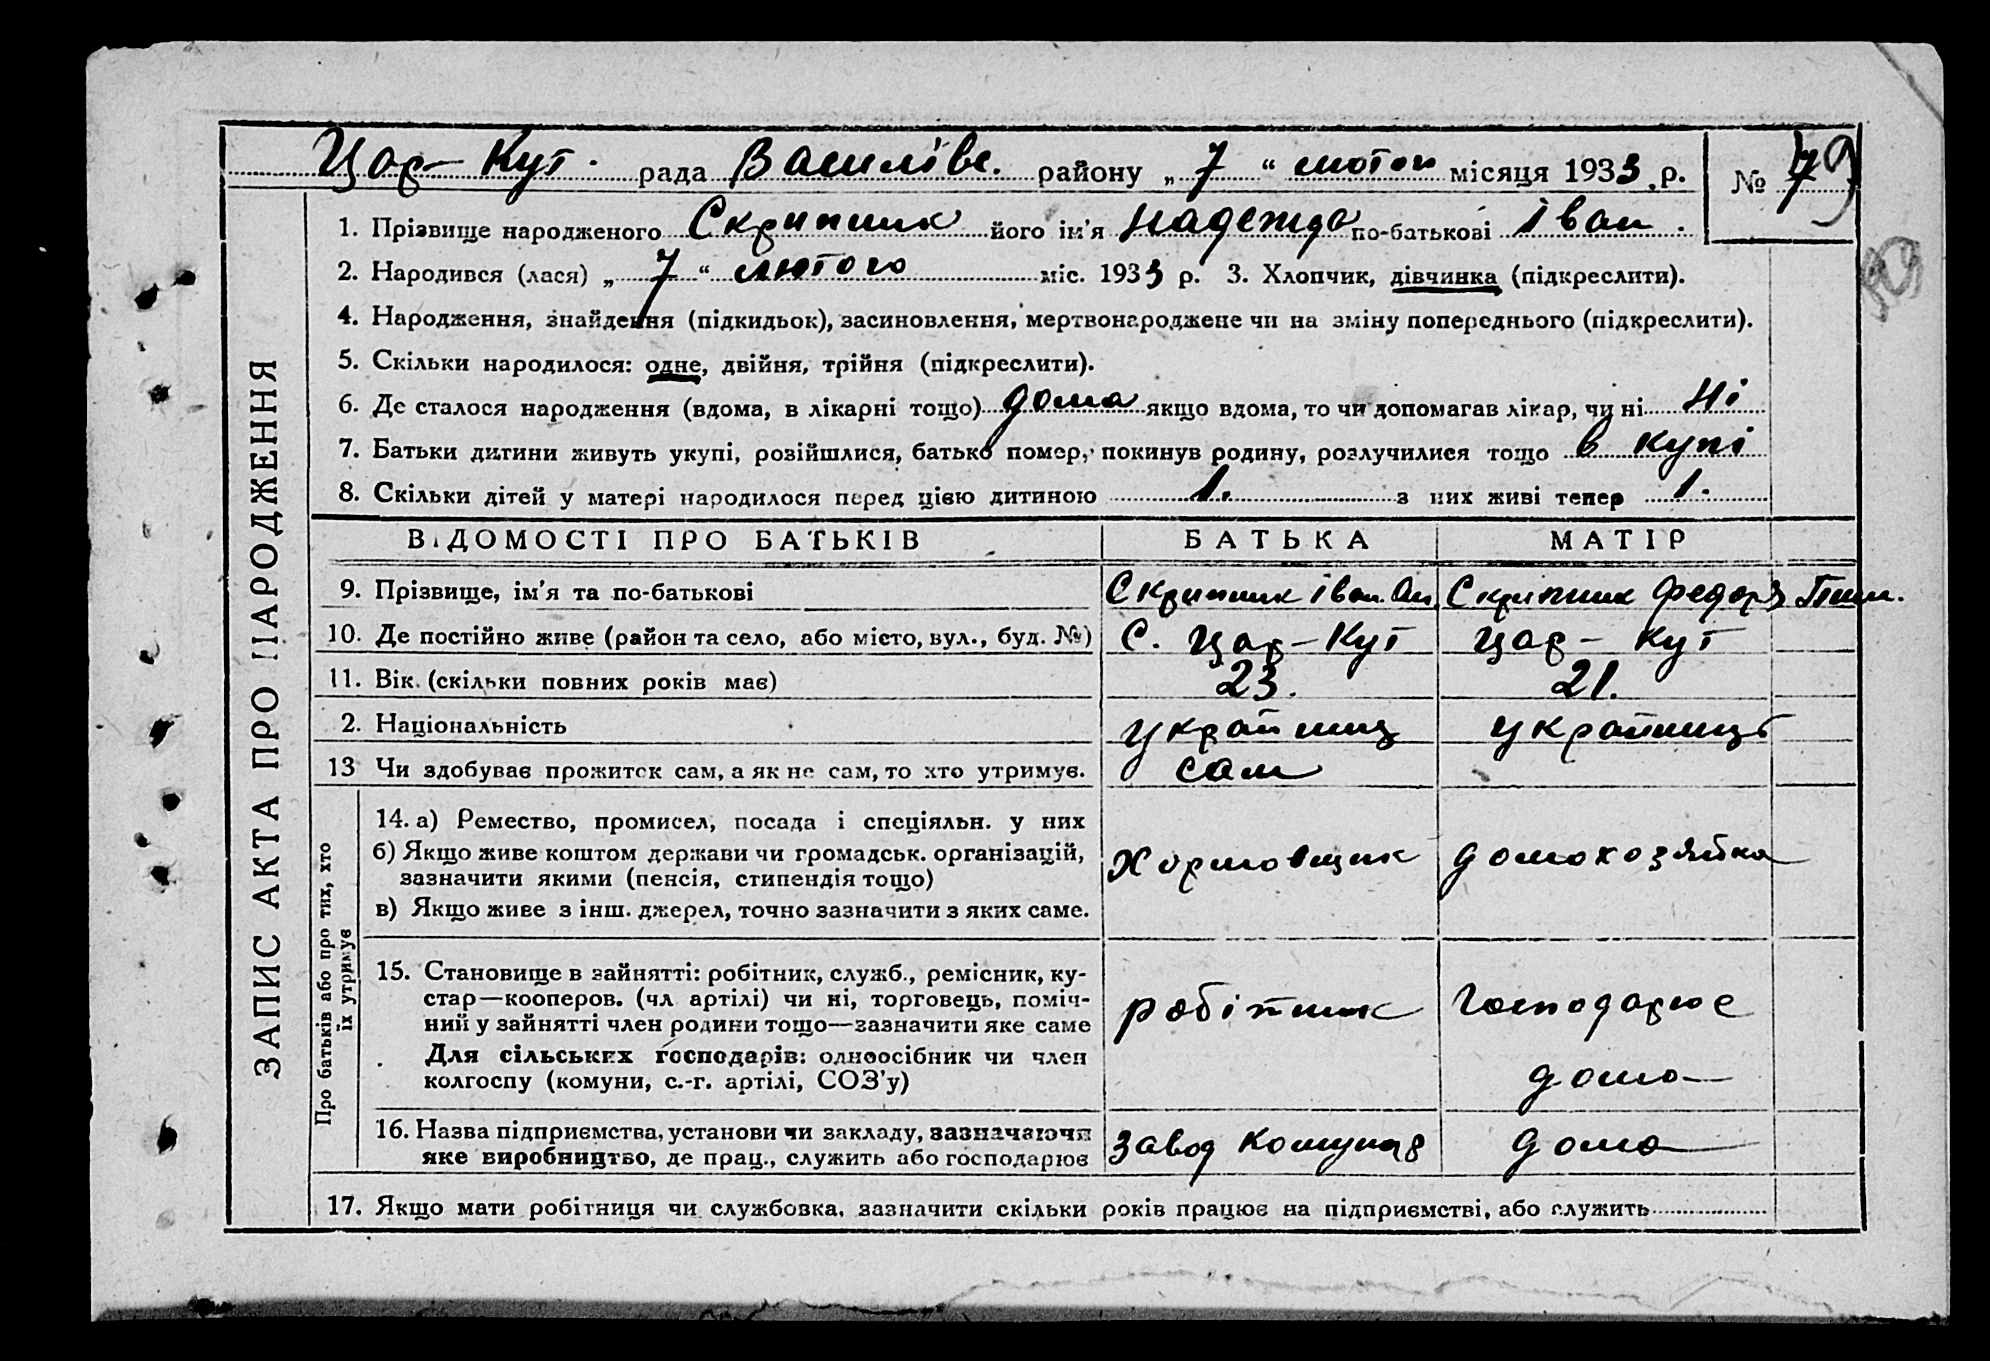 Цар-Кут. рада Василівс. району „7“ лютого місяця 1933 р. № 79
1. Прізвище народженого Скрипник його ім’я Надежда по-батькові Іван.
2. Народився (лася) „7“ лютого міс. 1933 р. 3. Хлопчик, дівчинка (підкреслити).
4. Народження, знайдення (підкидьок), засиновлення, мертвонароджене чи на зміну попереднього (підкреслити).
5. Скільки народилося: одне, двійня, трійня (підкреслити).
6. Де сталося народження (вдома, в лікарні тощо) дома якщо вдома, то чи допомагав лікар, чи ні Ні
7. Батьки дитини живуть укупі, розійшлися, батько помер, покинув родину, розлучилися тощо в купі
8. Скільки дітей у матері народилося перед цією дитиною 1. з них живі тепер 1.
ЗАПИС АКТА ПРО НАРОДЖЕННЯ
ВІДОМОСТІ ПРО БАТЬКІВ БАТЬКА МАТІР
9. Прізвище, ім’я та по-батькові Скрипник Іван Скрипник Федора
10. Де постійно живе (район та село, або місто, вул., буд. №) С. Цар-Кут Цар-Кут
11. Вік (скільки повних років має) 23. 21.
2. Національність українц українць
13 Чи здобуває прожиток сам, а як не сам, то хто утримує. сам
Про батьків або про тих, хто
їх утримує
14. а) Ремество, промисел, посада і спеціяльн. у них
б) Якщо живе коштом держави чи громадськ. організацій,
зазначити якими (пенсія, стипендія тощо) домохозяйка
в) Якщо живе з інш. джерел, точно зазначити з яких саме.
15. Становище в зайнятті: робітник, служб., ремісник, ку-
стар—кооперов. (чл артілі) чи ні, торговець, поміч- робітник господарює
ний у зайнятті член родини тощо—зазначити яке саме
Для сільських господарів: одноосібник чи член
колгоспу (комуни, с.-г. артілі, СОЗ’у) дома
16. Назва підприємства, установи чи закладу, зазначаючи
яке виробництво, де прац., служить або господарює завод Комунар дома
17. Якщо мати робітниця чи службовка, зазначити скільки років працює на підприємстві, або служить